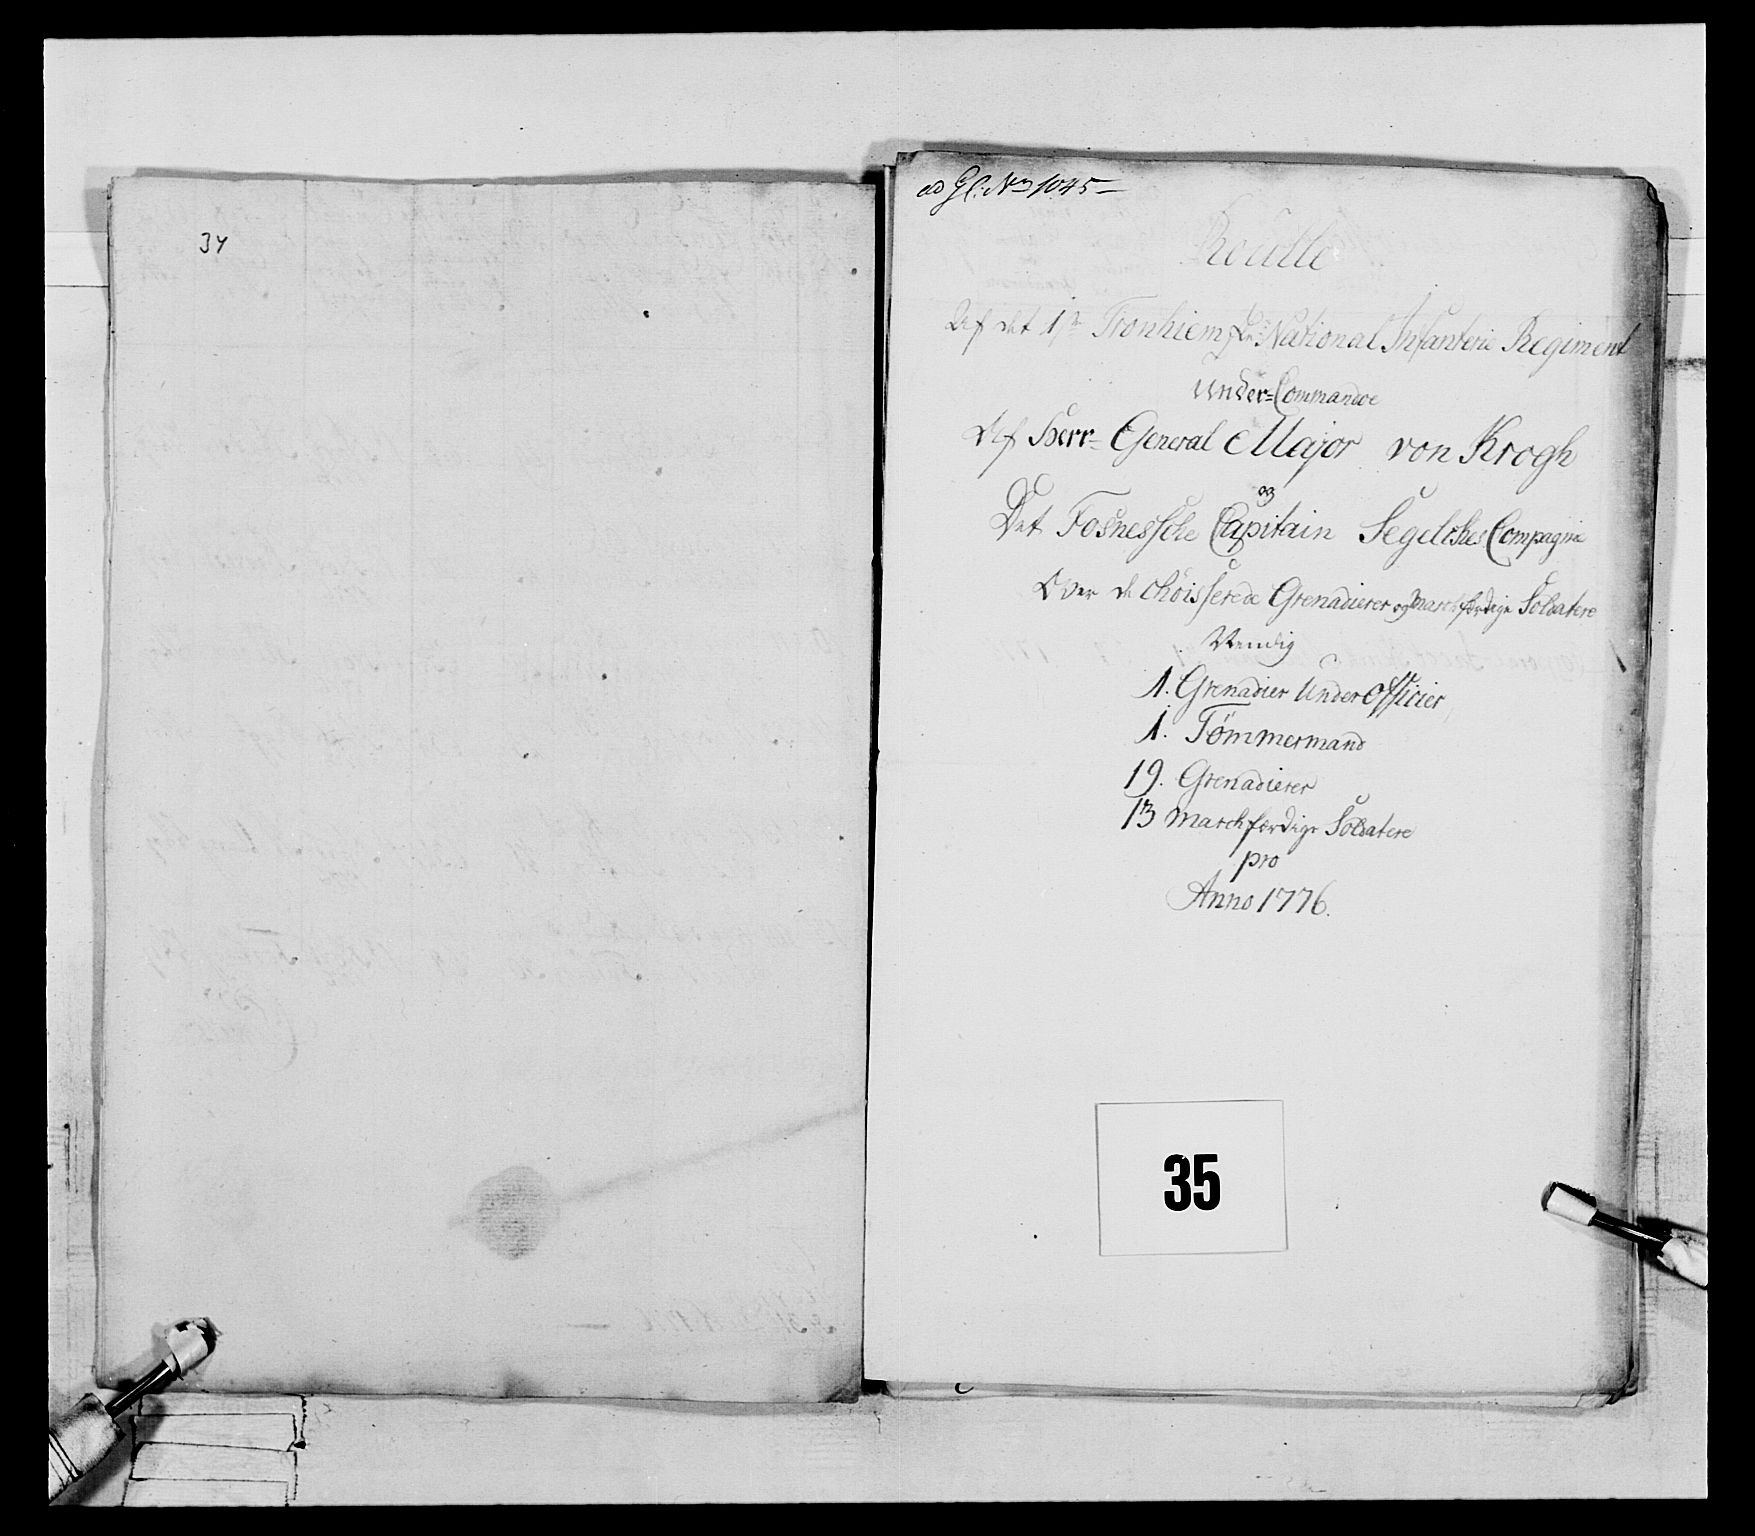 34
ad Gl. No 1045 –
Roulle
Af det 1ste Tronhiemske National Infanterie Regiment
Under-Commandoe
Af Herr- General Major von Krogh
og
Det Fosnessche Capitain Segelckes Compagnie
Over de choisserede Grenadierer og marchfærdige Soldatere
Nemlig
1. Grenadier Under Officier
1. Tømmermand
19. Grenadierer
13 marchfærdige Soldatere
pro
Anno 1776.
35